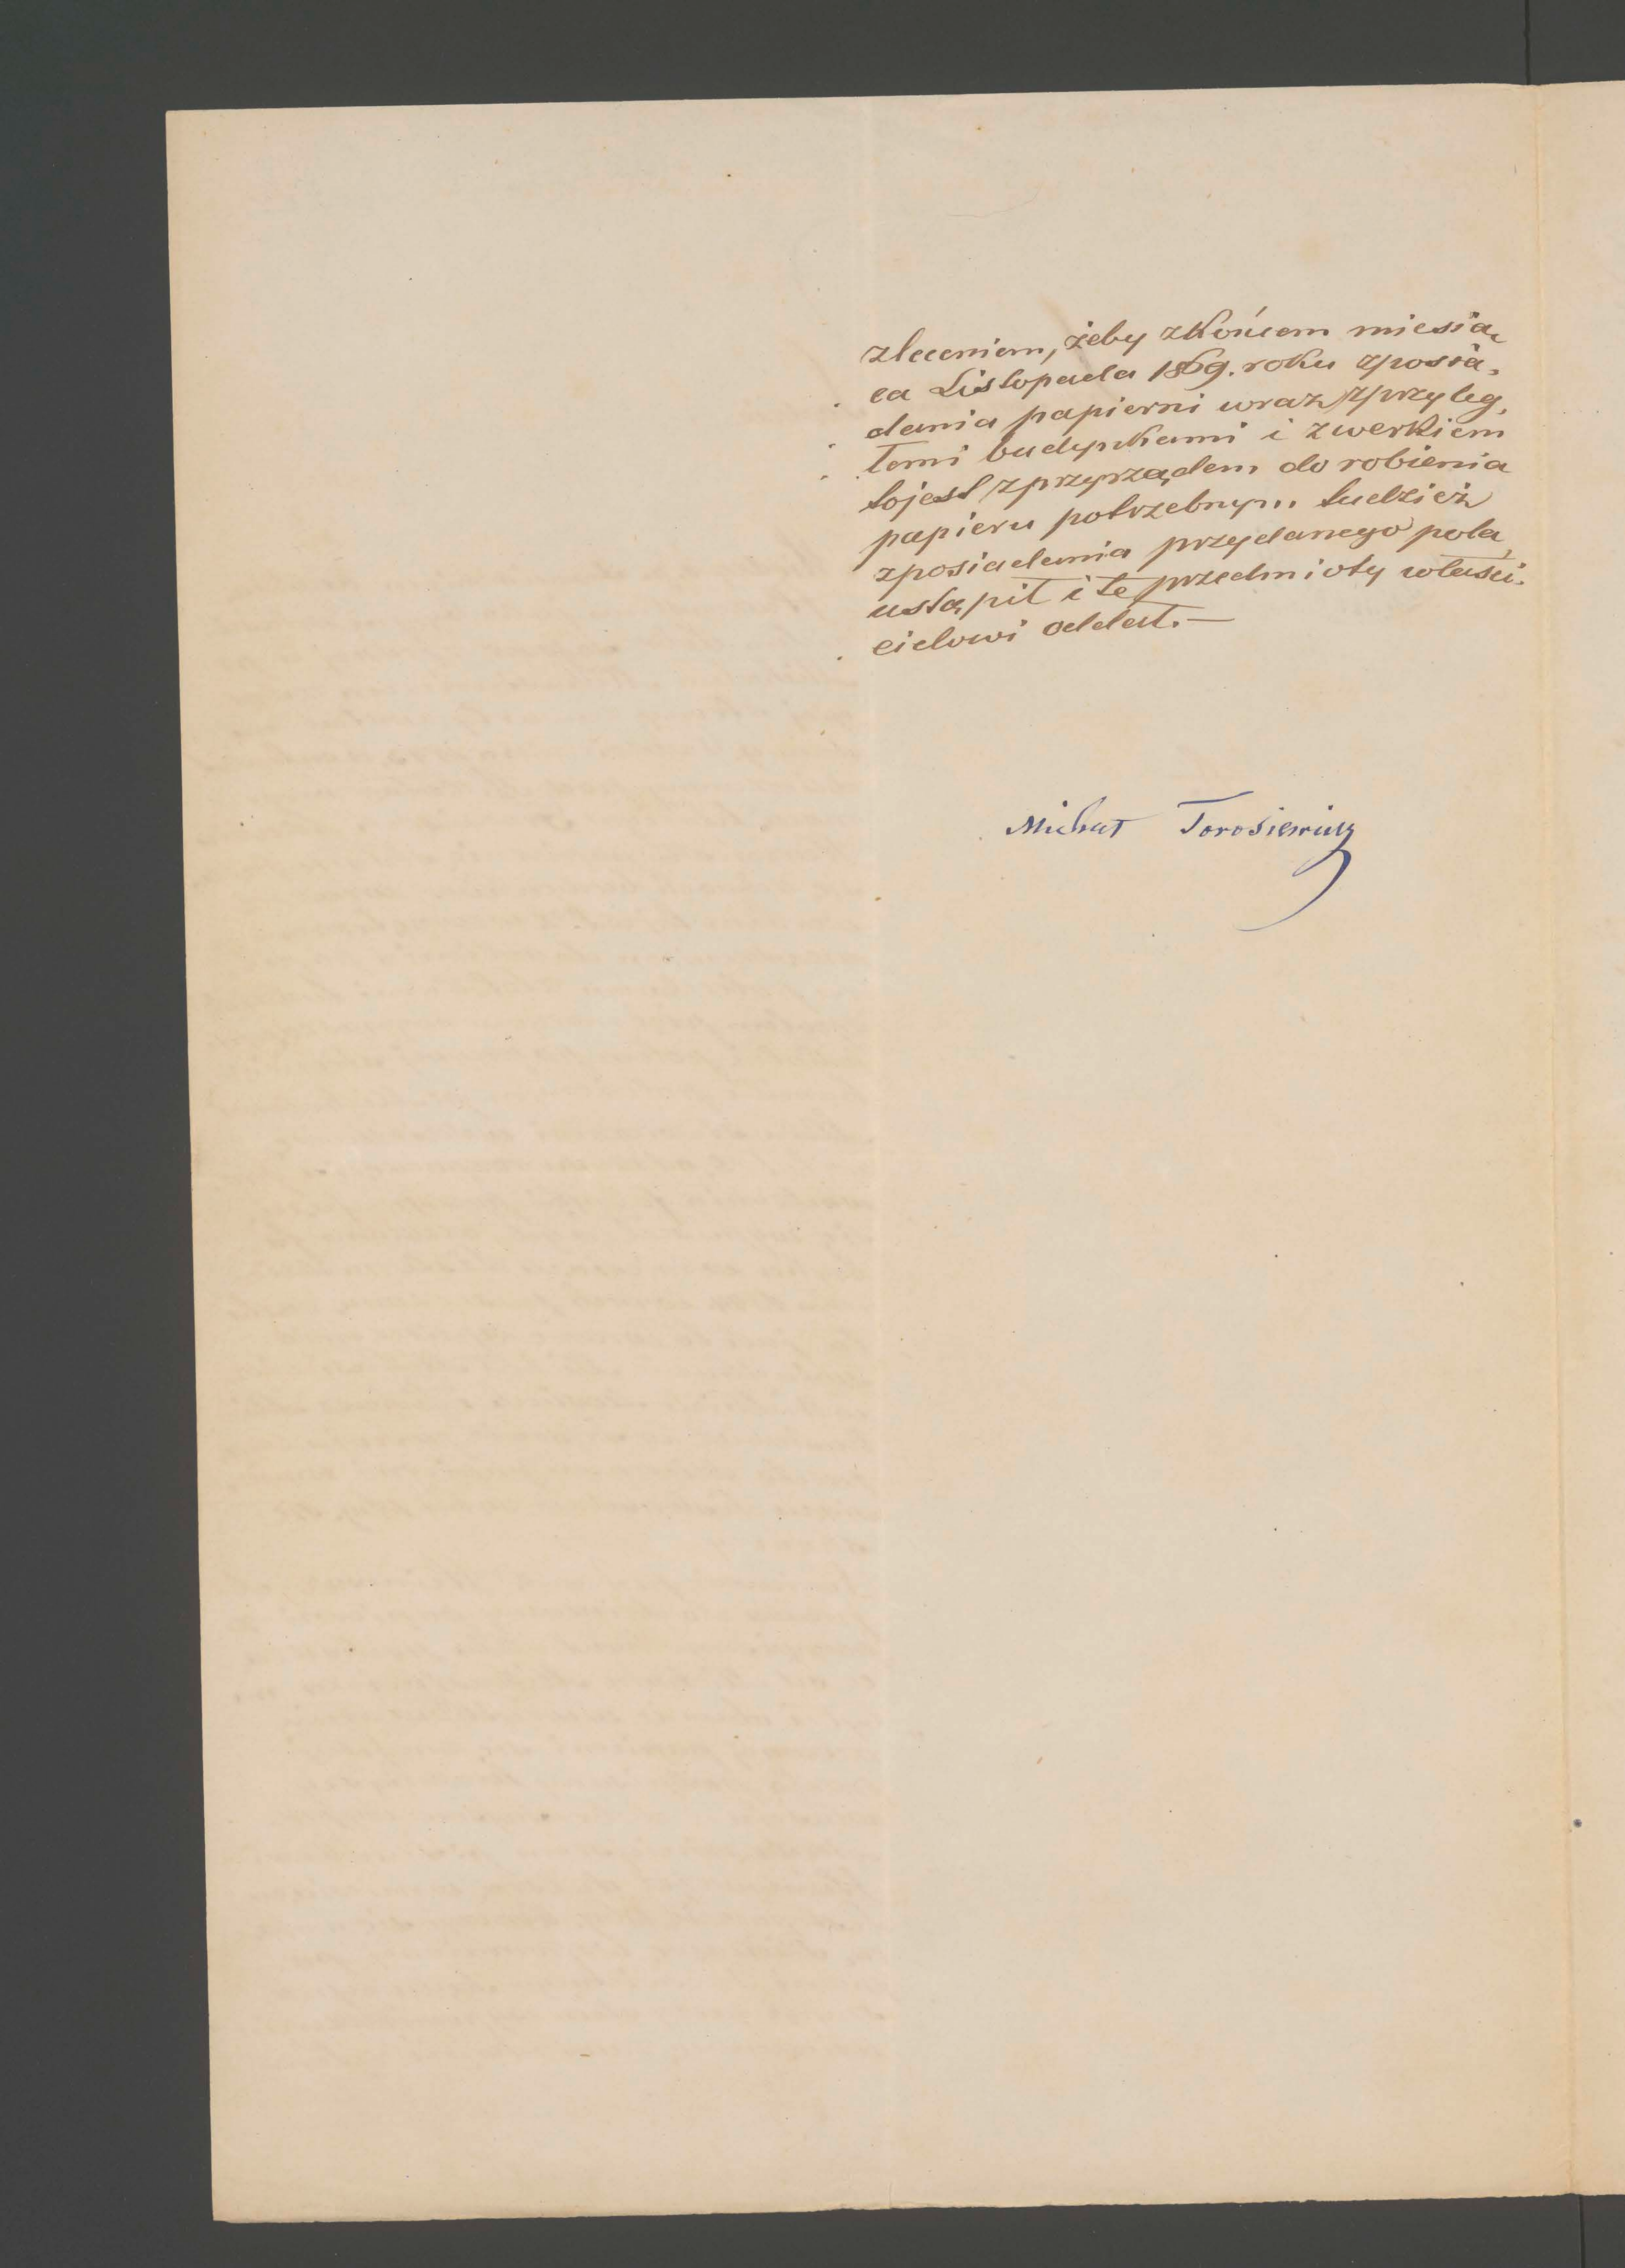 zleceniem, żeby zkońcem miesią,
ca Listopada 1869. roku zposia,
dania papierni wraz zprzyleg,
łemi budynkami i zwerkiem
tojest zprzyrządem do robienia
papieru potrzebnym tudzież
zposiadania przydanego pola,
ustąpił i te przedmioty właści,
cielowi oddał. —
Michał Torosiewicz